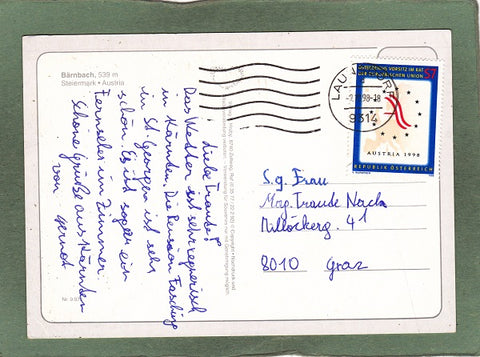 Bärnbach, 539 m
Steiermark • Austria
Liebe Traude!
Das Wetter ist sehr regnerisch
in Kärnten. Die Pension Fasching
in St. Georgen ist sehr
schön. Es ist sogar ein
Fernseher im Zimmer.
Schöne Grüße aus Kärnten
von Gernot
ÖSTERREICHS VORSITZ IM RAT
DER EUROPÄISCHEN UNION
S7
AUSTRIA 1998
REPUBLIK ÖSTERREICH
9314
S.g. Frau
Mag. Traude
Millöckerg. 41
8010 Graz